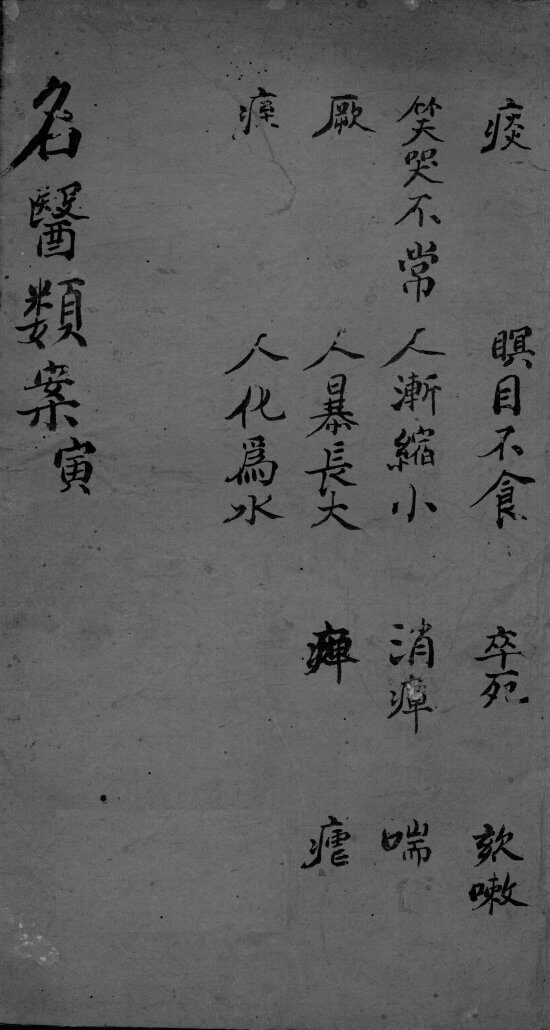 痰 瞑目不食 卒死 欬嗽
笑哭不常 人漸縮小 消癉 喘
厥 人暴長大 癉 瘧
人化爲水
名醫類案寅